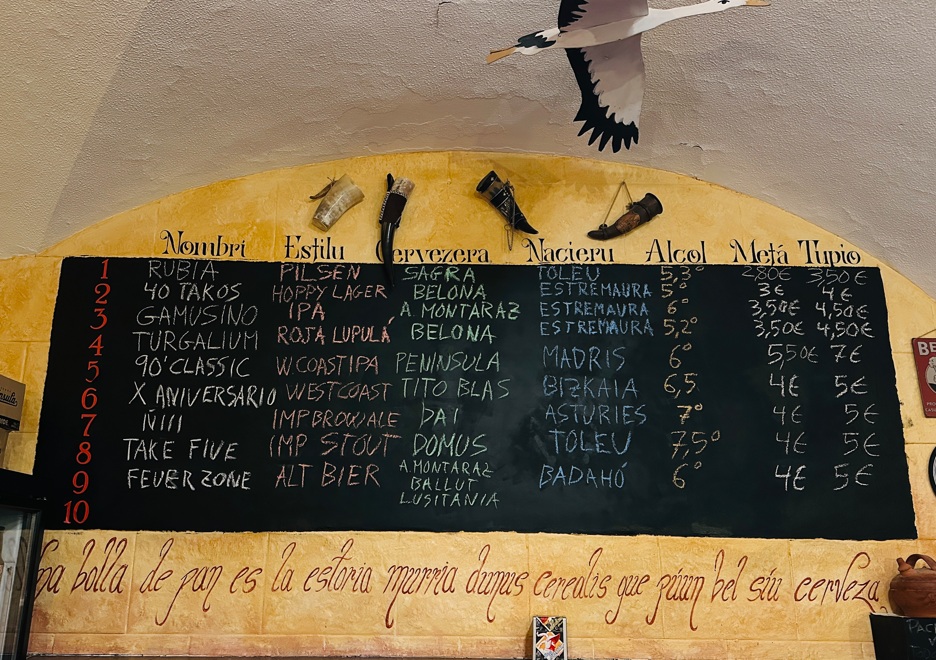 Nombri Estilu Cervezera Nacieru Alcol Metá Tupio
1 RUBIA PILSEN SAGRA TOLEU 5,3° 2,80€ 3,50€
2 40 TAKOS HOPPY LAGER BELONA ESTREMAURA 5° 3€ 4€
3 GAMUSINO IPA A MONTARAZ ESTREMAURA 6° 3,50€ 4,50€
4 TURGALIUM ROJA LUPULÁ BELONA ESTREMAURA 5,2° 3,50€ 4,50€
5 90'CLASSIC W.COAST IPA PENINSULA MADRIS 6° 5,50€ 7€
6 X ANIVERSARIO WESTCOAST TITO BLAS BIZKAIA 6,5 4€ 5€
7 ÑIII IMP BROWALE DAI ASTURIES 7° 4€ 5€
8 TAKE FIVE IMP STOUT DOMUS TOLEU 7,5° 4€ 5€
9 FEUERZONE ALT BIER A.MONTARAZ BALLUT LUSITANIA BADAHÓ 6° 4€ 5€
10
bolla de pan es la estoria murria dunus cerealis que púun bel síu cerveza